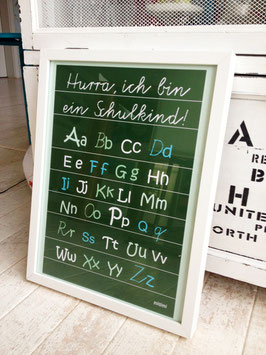 Hurra, ich bin
ein Schulkind!
Aa Bb Cc Dd
Ee Ff Gg Hh
Ii Jj Kk Ll Mm
Nn Oo Pp Qq
Rr Ss Tt Uu Vv
Ww Xx Yy Zz
A
B
H
UNITE
P
ORTH